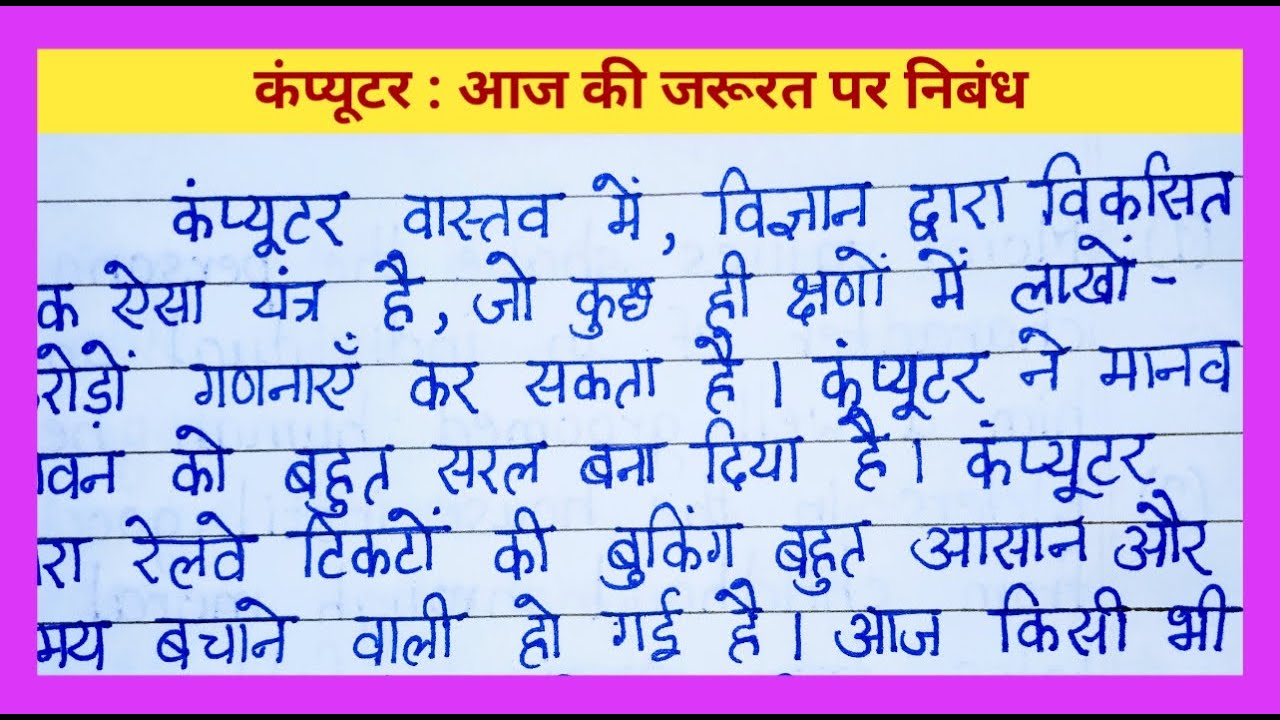 कंप्यूटर : आज की जरूरत पर निबंध
कंप्यूटर वास्तव में, विज्ञान द्वारा विकसित
क ऐसा यंत्र है, जो कुछ ही क्षणों में लाखों -
रोड़ों गणनाएँ कर सकता है। कंप्यूटर ने मानव
वन को बहुत सरल बना दिया है। कंप्यूटर
रा रेलवे टिकटों की बुकिंग बहुत आसान और
मय बचाने वाली हो गई है। आज किसी भी